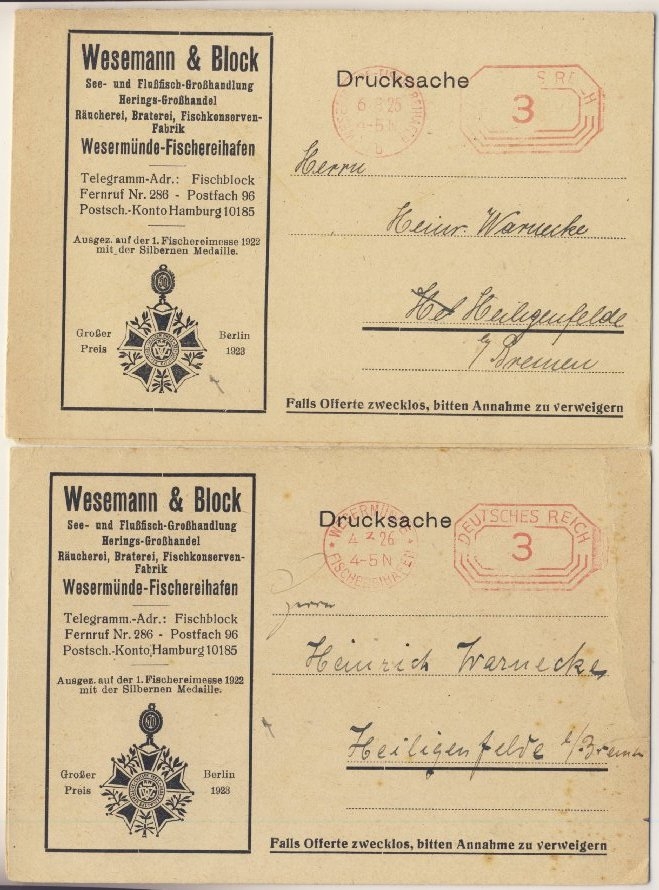 Wesemann & Block
See- und Flußfisch-Großhandlung
Herings-Großhandel
Räucherei, Braterei, Fischkonserven-
Fabrik
Wesermünde-Fischereihafen
Telegramm-Adr.: Fischblock
Fernruf Nr. 286 - Postfach 96
Postsch.-Konto Hamburg 10185
Ausgez. auf der 1. Fischereimesse 1922
mit der Silbernen Medaille.
Großer Preis
Berlin 1923
Drucksache
6 8 25
4-5 N
b
S REICH
3
Herrn
Heinr. Warnecke
Heiligenfelde
b/Bremen
Falls Offerte zwecklos, bitten Annahme zu verweigern
Wesemann & Block
See- und Flußfisch-Großhandlung
Herings-Großhandel
Räucherei, Braterei, Fischkonserven-
Fabrik
Wesermünde-Fischereihafen
Telegramm.-Adr.: Fischblock
Fernruf Nr. 286 - Postfach 96
Postsch.-Konto Hamburg 10185
Ausgez. auf der 1. Fischereimesse 1922
mit der Silbernen Medaille.
Großer Preis
Berlin 1923
Drucksache
WESERMÜNDE
4 2 26
4-5 N
FISCHEREIHAFEN
DEUTSCHES REICH
3
Herrn
Heinrich Warnecke
Heiligenfelde b/Bremen
Falls Offerte zwecklos, bitten Annahme zu verweigern